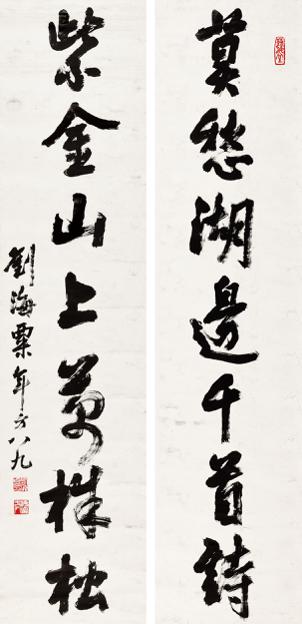 莫愁湖邊千首詩
紫金山上萬株松
劉海粟年方八九